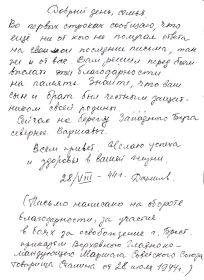 Добрый день, семья
Во первых строках сообщаю, что
ещё ни от кого не получил ответа
на свои последние письма, так
же и от вас. Вам решил перед боем
выслать эти благодарности
на память. Знайте, что ваш
сын и брат был честным защит-
ником своей родины.
Сейчас на берегу Западного Буга
севернее Варшавы.
Всем привет. Желаю успеха
и здоровья в вашей жизни
28/VIII - 44г. Данилов.
(Письмо написано на обороте
благодарности, за участие
в боях за освобождение г. Брест,
приказом Верховного Главноко-
мандующего Маршала Советского Союза
товарища Сталина от 28 июля 1944г.)